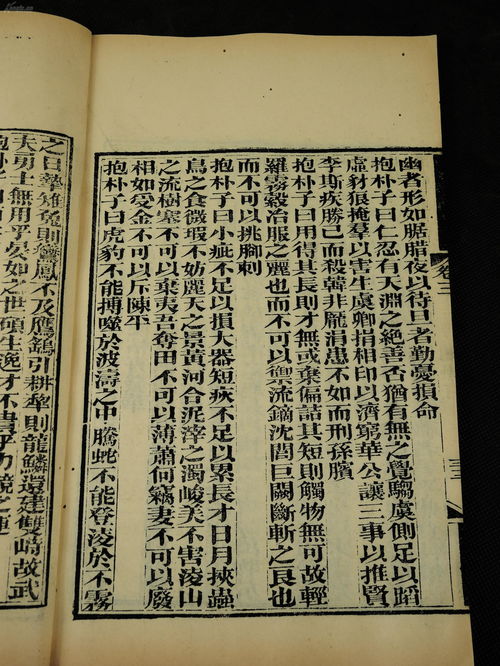 幽者形如腒腊夜以待旦者勤憂損命
抱朴子曰仁忍有天淵之絶善否猶有無之覺騶虞側足以蹈
虛豺狼掩羣以害生虞卿捐相印以濟窮華公讓三事以推賢
李斯疾勝己而殺韓非龐涓患不如而刑孫臏
抱朴子曰用得其長則才無或棄偏詰其短則觸物無可故輕
羅霧縠冶服之麗也而不可以禦流鏑沈閭巨闕斷斬之良也
而不可以挑腳刺
抱朴子曰小疵不足以損大器短疢不足以累長才日月挾蟲
鳥之食微瑕不妨麗天之景黃河合泥滓之濁峻美不害凌山
之流樹塞不可以棄夷吾奪田不可以薄蕭何竊妻不可以廢
相如受金不可以斥陳平
抱朴子曰虎豹不能搏噬於波濤之中騰蛇不能登淩於不霧
之日摯雉兔則鸞鳳不及鷹鷂引耕犂則龍鱗還建雙﨑故武
夫勇士無用乎晏如之世碩生逸才不貴乎力競之運
卷三
Kongfz.com